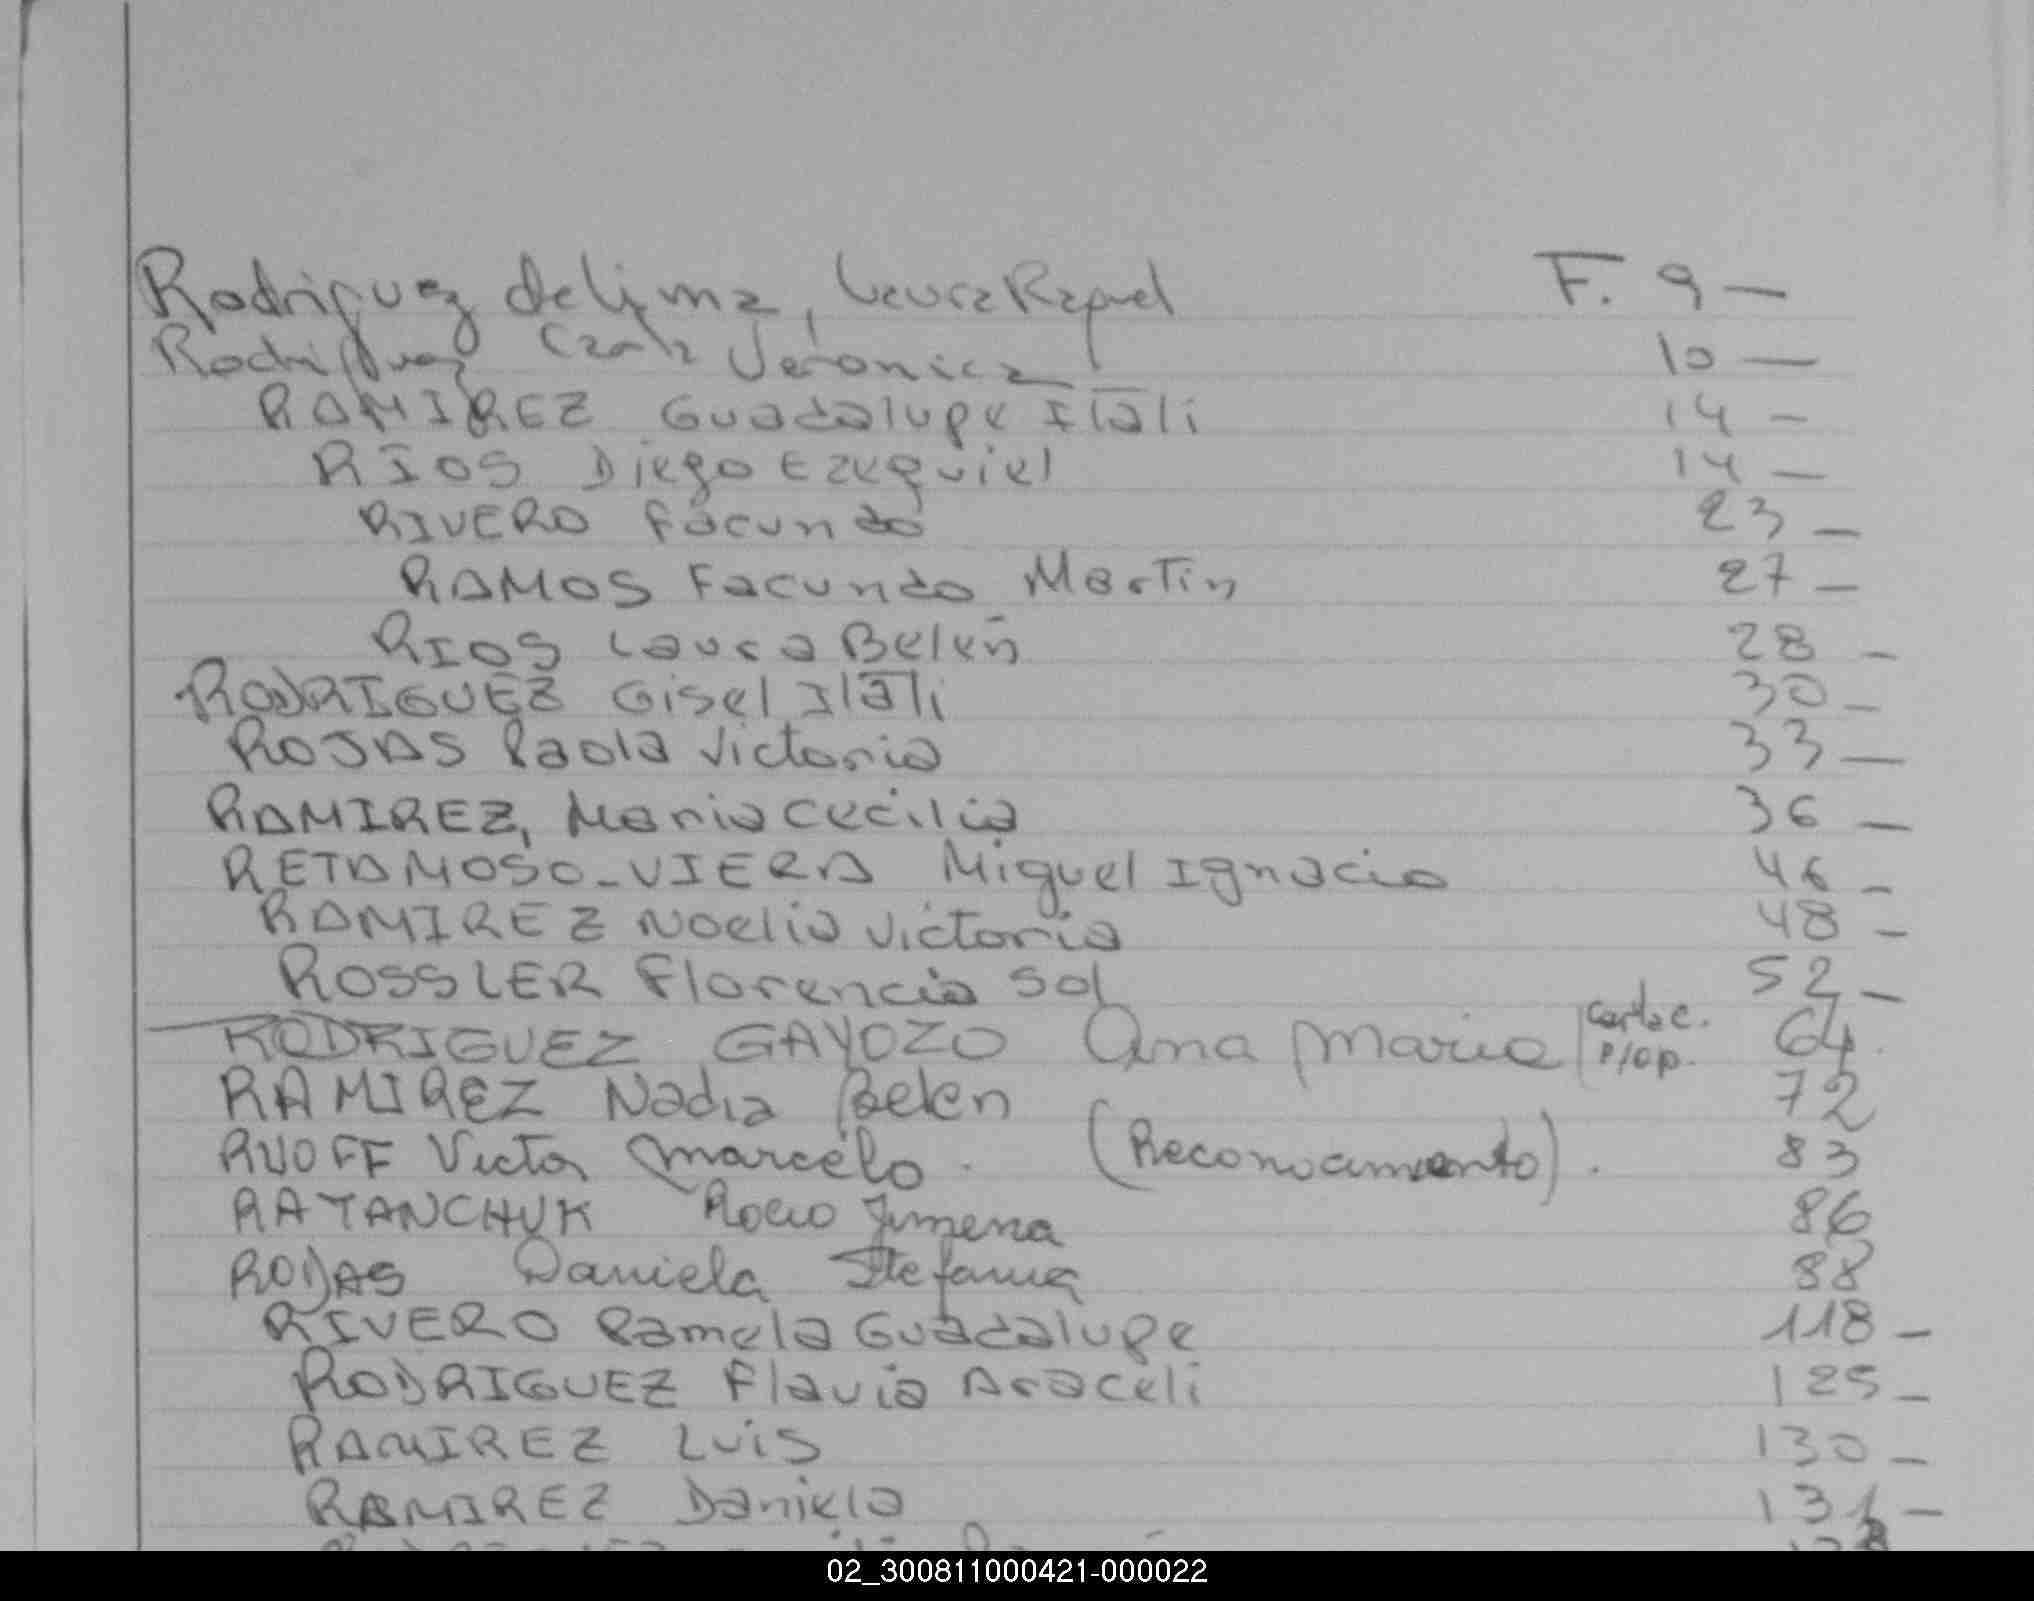 Rodriguez de lima, Laura Raquel F. 9 —
Rodriguez Carla Veronica 10 —
RAMIREZ Guadalupe Itali 14 —
RIOS Diego Ezequiel 14 —
RIVERO Facundo 23 —
RAMOS Facundo Martin 27 —
RIOS Laura Belén 28 —
RODRIGUEZ Gisel Itali 30 —
ROJAS Paola Victoria 33 —
RAMIREZ, Maria Cecilia 36 —
RETAMOSO-VIERA Miguel Ignacio 46 —
RAMIREZ Noelia Victoria 48 —
ROSSLER Florencia Sol 52 —
RODRIGUEZ GAYOZO Ana Maria | carta c. P/op. 64.
RAMIREZ Nadia Belen 72
RUOFF Victor Marcelo. (Reconocimiento). 83
RATANCHUK Rocio Jimena 86
ROJAS Daniela Stefania 88
RIVERO Pamela Guadalupe 118 —
RODRIGUEZ Flavia Araceli 125 —
RAMIREZ Luis 130 —
RAMIREZ Daniela 131 —
02_300811000421-000022